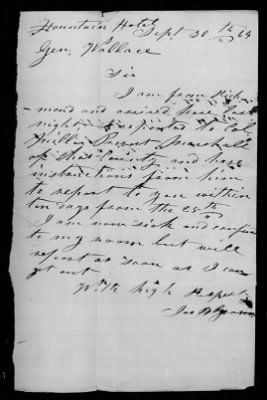 Fountain Hotel
Sept 30th 64
Gen. Wallace
Sir
I am from Rich-
mond and arrived here last
night. I reported to Col
Provost Marshall
of County and have
instructions from him
to report to you within
ten days from the 25th
I am now sick and confined
to my room but will
report as soon as I can
get out
With high Respect